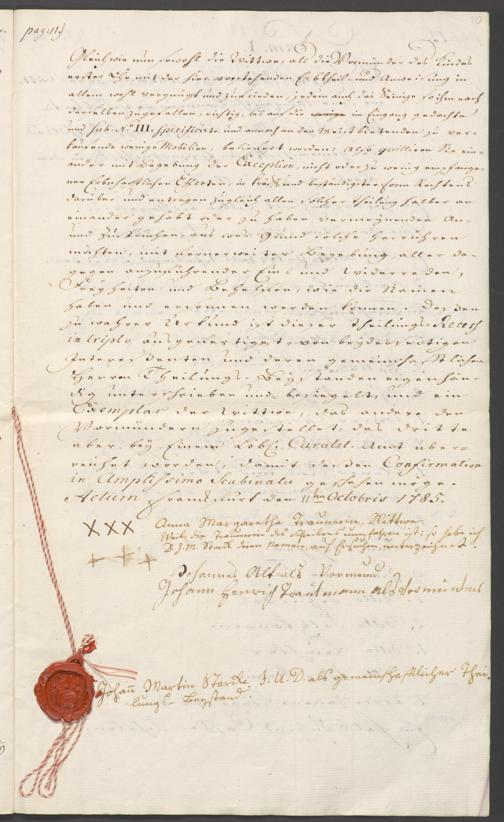 pag: 11.)
10
Gleichwie nun sowohl die Wittwe, als die Vormünder des Kindes
erster Ehe mit der hier vorstehenden Erbtheil- und Anweisung in
allem wohl vergnügt und zufrieden, jedem auch das Seinige, so ihm nach
derselben zugefallen, richtig, bis auf die in Eingang gedachte
und sub N.º III. specificirte und annoch an den Meistbietenden zu ver-
kaufende wenige Mobilien, geliefert worden: Also quittiren Sie ein-
ander mit Begebung der Exception, nicht oder zu wenig empfange-
ner Erbschaftlichen Effecten, in bester und beständigster Form Rechtens
darüber und entsagen zugleich allen solcher Theilung halber an
einander gehabt oder zu haben vermeynenden An-
und Zusprüchen, aus was Grund solche herrühren
möchten, mit fernerweiter Begebung aller da-
gegen anzuführender Ein- und Widerreden,
Freyheiten und Behelfen, wie die Namen
haben und ersonnen werden können. Dessen
zu wahrer Urkund ist dieser Theilungs-Recess
in triplo ausgefertiget, von beyderseitigen
Interessenten und deren gemeinschaftlichen
Herrn Theilungs-Beystanden eigenhän-
dig unterschrieben und besiegelt, und ein
Exemplar der Wittwe, das andere den
Vormündern zugestellet, das dritte
aber bey Einem Löbl. Curatel-Amt über-
reichet worden, damit dessen Confirmation
in Amplissimo Scabinatu geschehen möge.
Actum Franckfurt den 11ten Octobris 1785.
XXX Anna Margaretha Traumann, Wittwe
Weil die Traumann des Schreibens unerfahren ist, so habe ich
D. J. M. Starck ihren Namen, auf Ersuchen, unterzeichnet.
+ + +
Johannes Alt als Vormund
Johann Henrich Trautmann als Vormunder
Johann Martin Starck J. U. D. als gemeinschaftlicher Thei-
lungs-Beystand